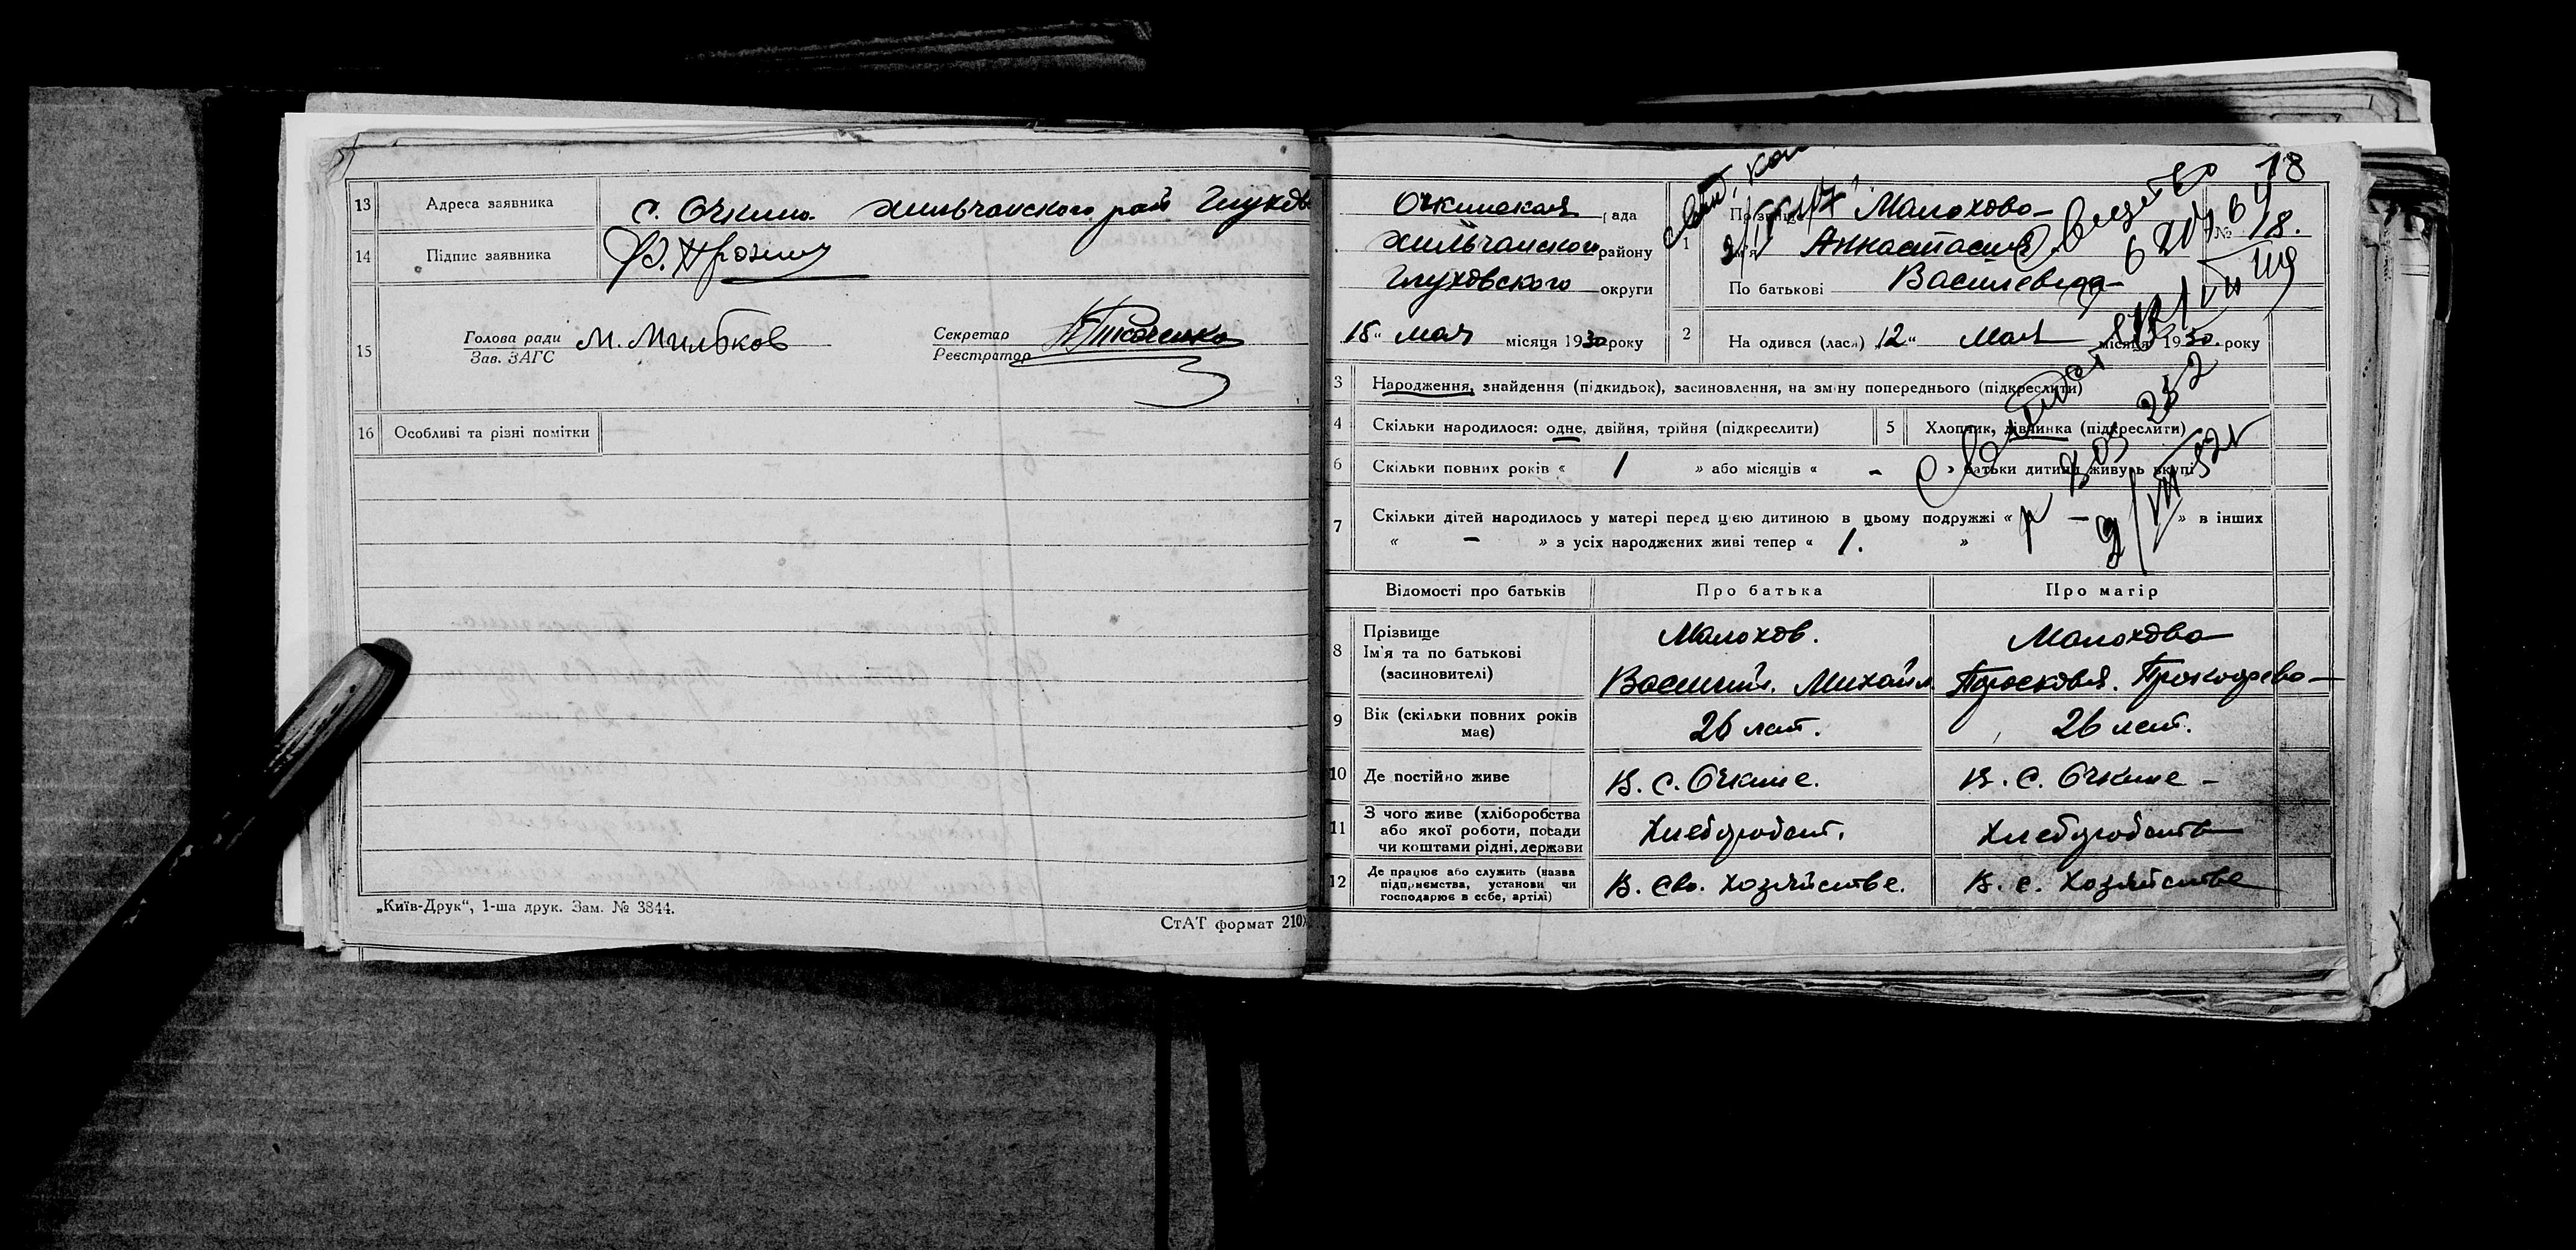 13 Адреса заявника с. Очкино. Хильчанского рай Глухов
14 Підпис заявника
15 Голова ради М. Мильков Секретар Ткаченко
Зав. ЗАГС Реєстратор
16 Особливі та різні помітки
„Київ-Друк“, 1-ша друк. Зам. № 3844.
СтАТ формат 210
18
Очкинская рада
Хильчанского району
Глуховского округи
18 „ мая місяця 1930 року
1 Прізвище Малохова
Ім'я Анастасия
По батькові Васильевна
№ 18.
2 На одився (лась) „12“ Мая місяця 1930. року
3 Народження, знайдення (підкидьок), засиновлення, на зміну попереднього (підкреслити)
4 Скільки народилося: одне, двійня, трійня (підкреслити) 5 Хлопчик, дівчинка (підкреслити)
6 Скільки повних років « 1 » або місяців « - » батьки дитини живуть вкупі
7 Скільки дітей народилось у матері перед цією дитиною в цьому подружжі « - » в інших
« - » з усіх народжених живі тепер « 1. »
Відомості про батьків Про батька Про матір
8 Прізвище Ім'я та по батькові (засновителі) Малохов. Василий. Михайл. Малохова Просковья. Прокофьева
9 Вік (скільки повних років має) 26 лет. 26 лет.
10 Де постійно живе В. С. Очкине. В. С. Очкине -
11 З чого живе (хліборобства або якої роботи, посади чи коштами рідні, держави Хлебороб Хлебороб
12 Де працює або служить (назва підприємства, установи чи господарює в себе, артілі) В. Сво. Хозяйстве. В. с. Хозяйстве